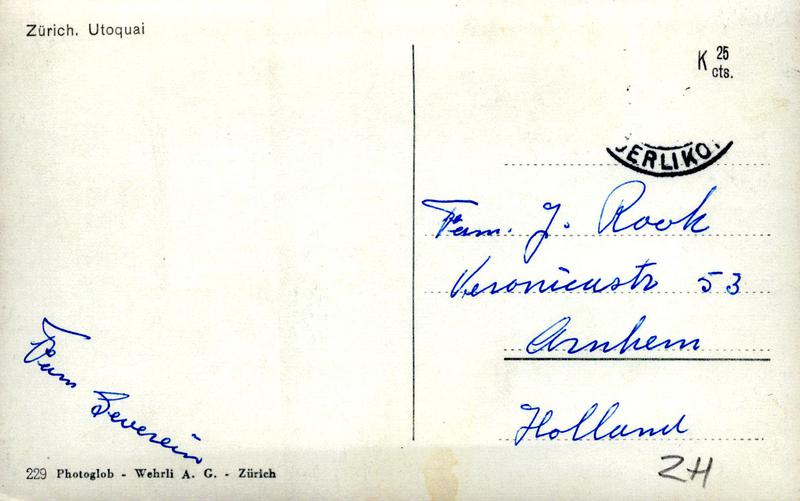 Zürich. Utoquai
K 25 cts.
OERLIKO
Fam. J. Rook
Veronicastr 53
Arnhem
Holland
Fam Severein
229 Photoglob - Wehrli A. G. - Zürich
ZH